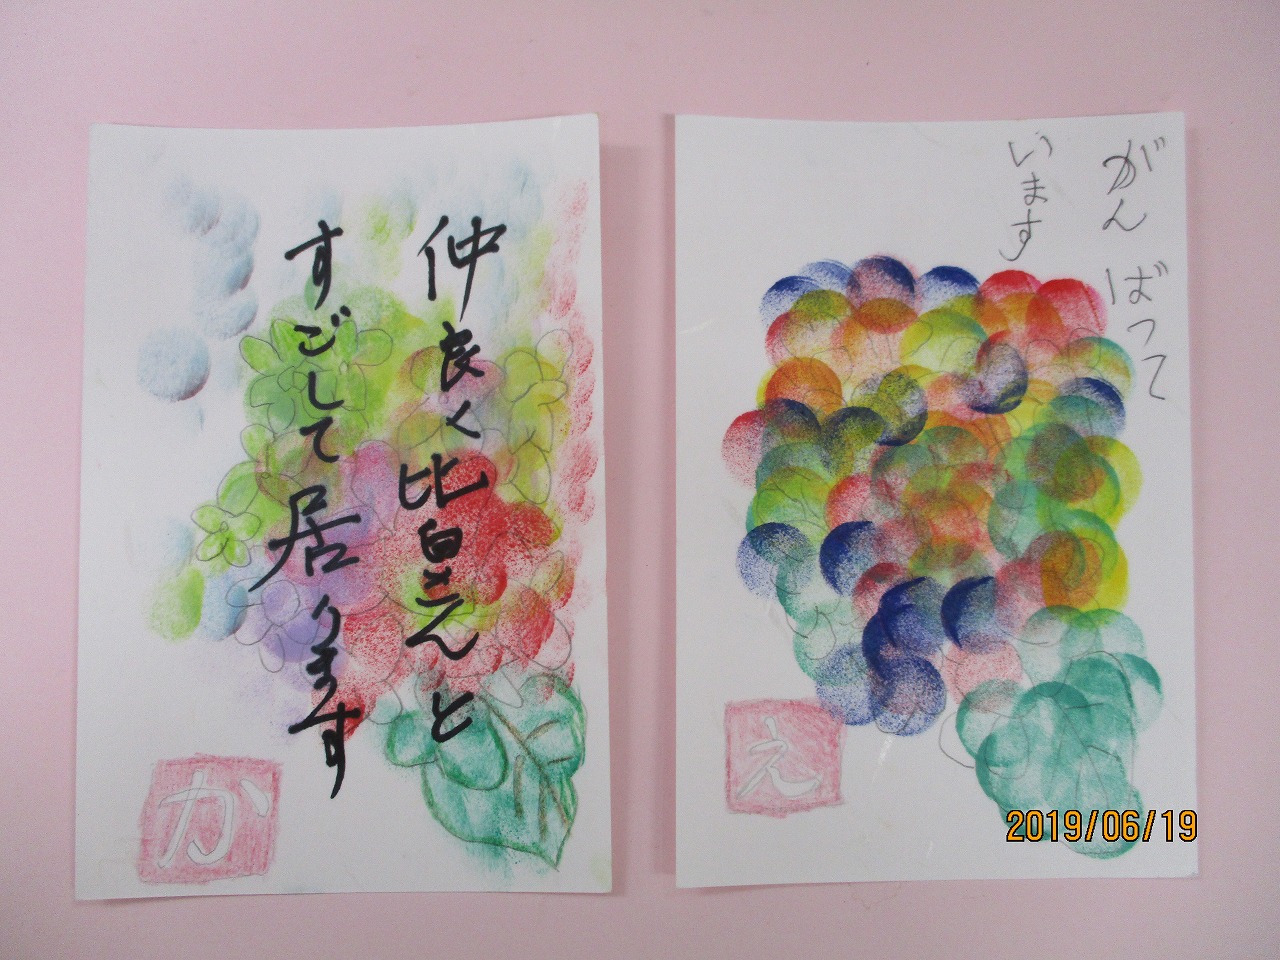 仲良く比皇えと
すごして居ります
か
がんばって
います
え
2019/06/19